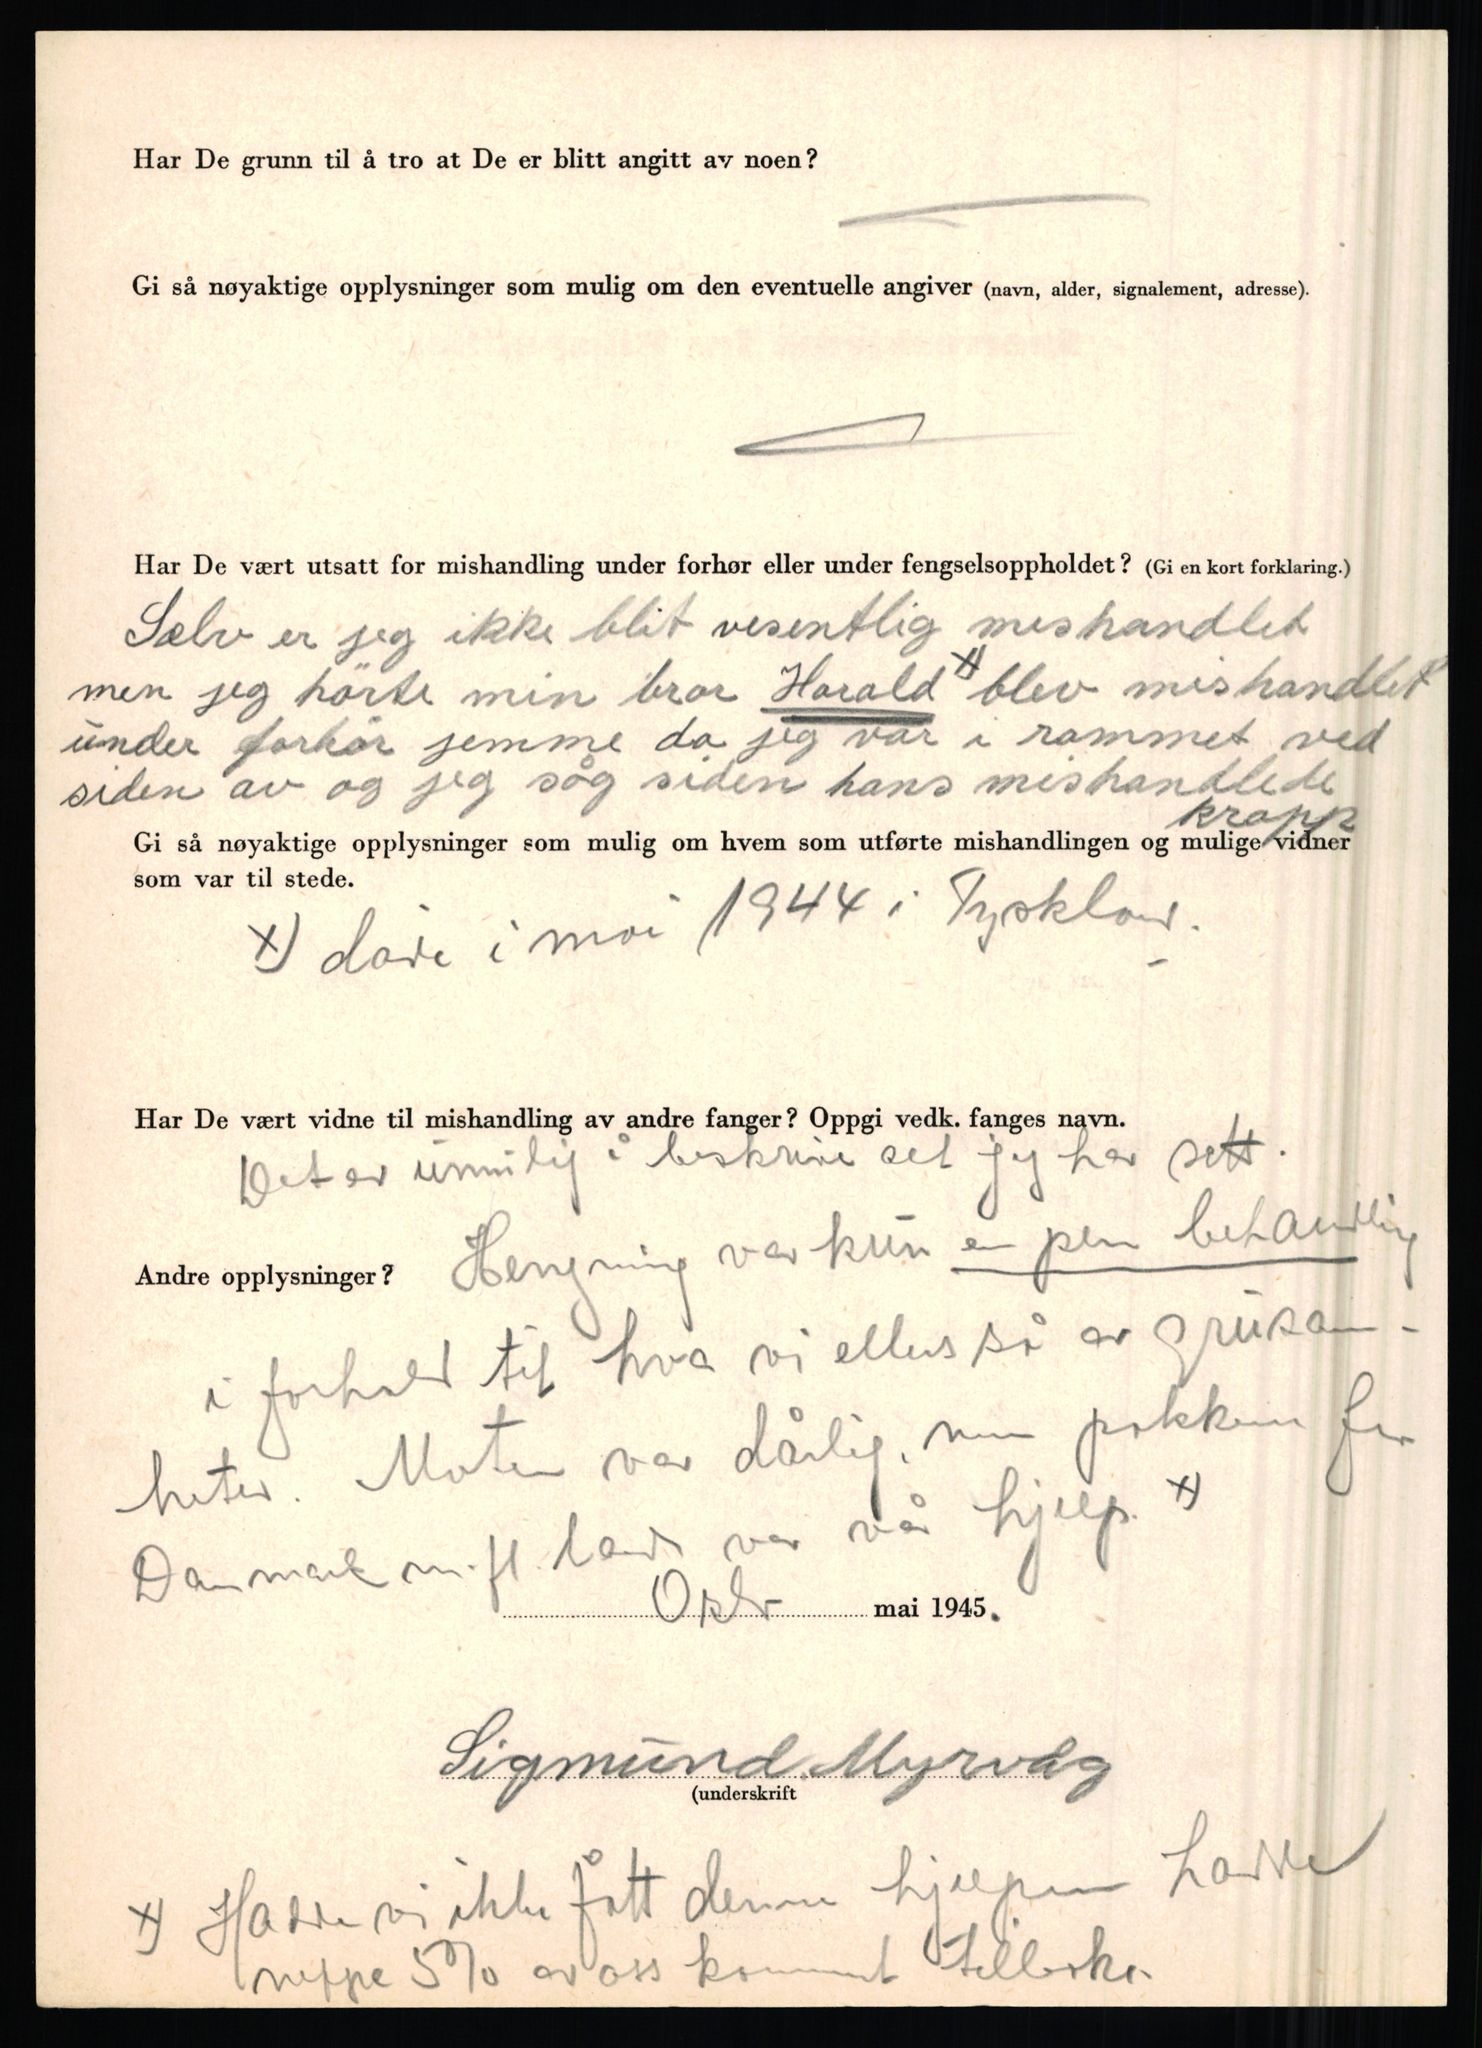 Har De grunn til å tro at De er blitt angitt av noen?
Gi så nøyaktige opplysninger som mulig om den eventuelle angiver (navn, alder, signalement, adresse).
Har De vært utsatt for mishandling under forhør eller under fengselsoppholdet? (Gi en kort forklaring.)
Selv er jeg ikke blit vesentlig mishandlet
men jeg hörte min bror Harald x) blev mishandlet
under forhör jemme da jeg var i rommet ved
siden av og jeg såg siden hans mishandlede
kropp
Gi så nøyaktige opplysninger som mulig om hvem som utførte mishandlingen og mulige vidner
som var til stede.
x) døde i mai 1944 i Tyskland.
Har De vært vidne til mishandling av andre fanger? Oppgi vedk. fanges navn.
Det er umulig å beskrive det jeg har sett.
Andre opplysninger? Hengning var kun en pen behandling
i forhold til hva vi ellers så av grusom-
heter. Maten var dårlig, men pakkene fra
Danmark m. fl. land var vår hjelp. x)
Oslo mai 1945.
Sigmund Myrvåg
(underskrift
x) Hadde vi ikke fått denne hjelpen hadde
neppe 5% av oss kommet tilbake.